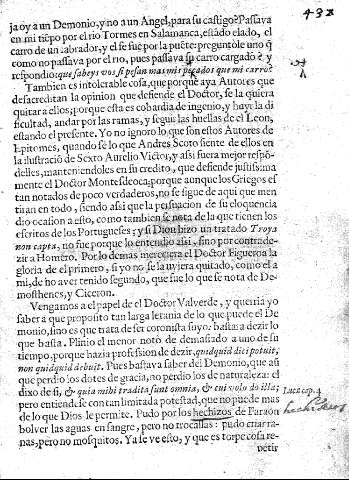 432
ja oy a un Demonio, y no a un Angel, para su castigo? Passava
en mi tiẽpo por el rio Tormes en Salamanca, estãdo elado, el
carro de un labrador, y el se fue por la puẽte: preguntole uno q̃
como no passava por el rio, pues passava su carro cargado? y
respondio: que sabeys vos si pesan mas mis pecados que mi carro?
Tambien es intolerable cosa, que porque aya Autores que
desacreditan la opinion que defiende el Doctor, se la quiera
quitar a ellos; porque esta es cobardia de ingenio, y hayr la di
ficultad, andar por las ramas, y seguir las huellas de el Leon,
estando el presente. Yo no ignoro lo que son estos Autores de
Epitomes, quando sè lo que Andres Scoto siente de ellos en
la ilustraciõ de Sexto Aurelio Victor, y assi fuera mejor respõ-
delles, manteniendoles en su credito, que defiende justissima
mente el Doctor Montesdeoca; porque aunque los Griegos es
tan notados de poco verdaderos, no se sigue de aqui que men
tiran en todo, siendo assi que la persuasion de su eloquencia
dio ocasion a esto, como tambien se nota de la que tienen los
escritos de los Portugueses; y si Dion hizo un tratado Troya
non capta, no fue porque lo entendio assi, sino por contrade-
zir a Homero. Por lo demas mereciera el Doctor Figueroa la
gloria de el primero, si yo no se la uviera quitado, como el a
mi, de no aver tenido segundo, que fue lo que se nota de De-
mosthenes, y Ciceron.
Vengamos a el papel de el Doctor Valverde, y querria yo
saber a que proposito tan larga letania de lo que puede el De
monio, sino es que trata de ser coronista suyo: basta a dezir lo
que basta. Plinio el menor notò de demasiado a uno de su
tiempo, porque hazia profession de dezir, quidquid dici potuit,
non quidquid debuit. Pues bastava saber del Demonio, que as
si que perdio los dotes de gracia, no perdio los de naturaleza: el
dixo de si, & quia mihi tradita sunt omnia, & cui volo do illa;
pero entiendese con tan limitada potestad, que no puede mas
de lo que Dios le permite. Pudo por los hechizos de Faraon
bolver las aguas en sangre, pero no trocallas: pudo criar ra-
nas, pero no mosquitos. Ya se ve esto, y que es torpe cosa re-
petir
Luc. cap. 4
hechizeros